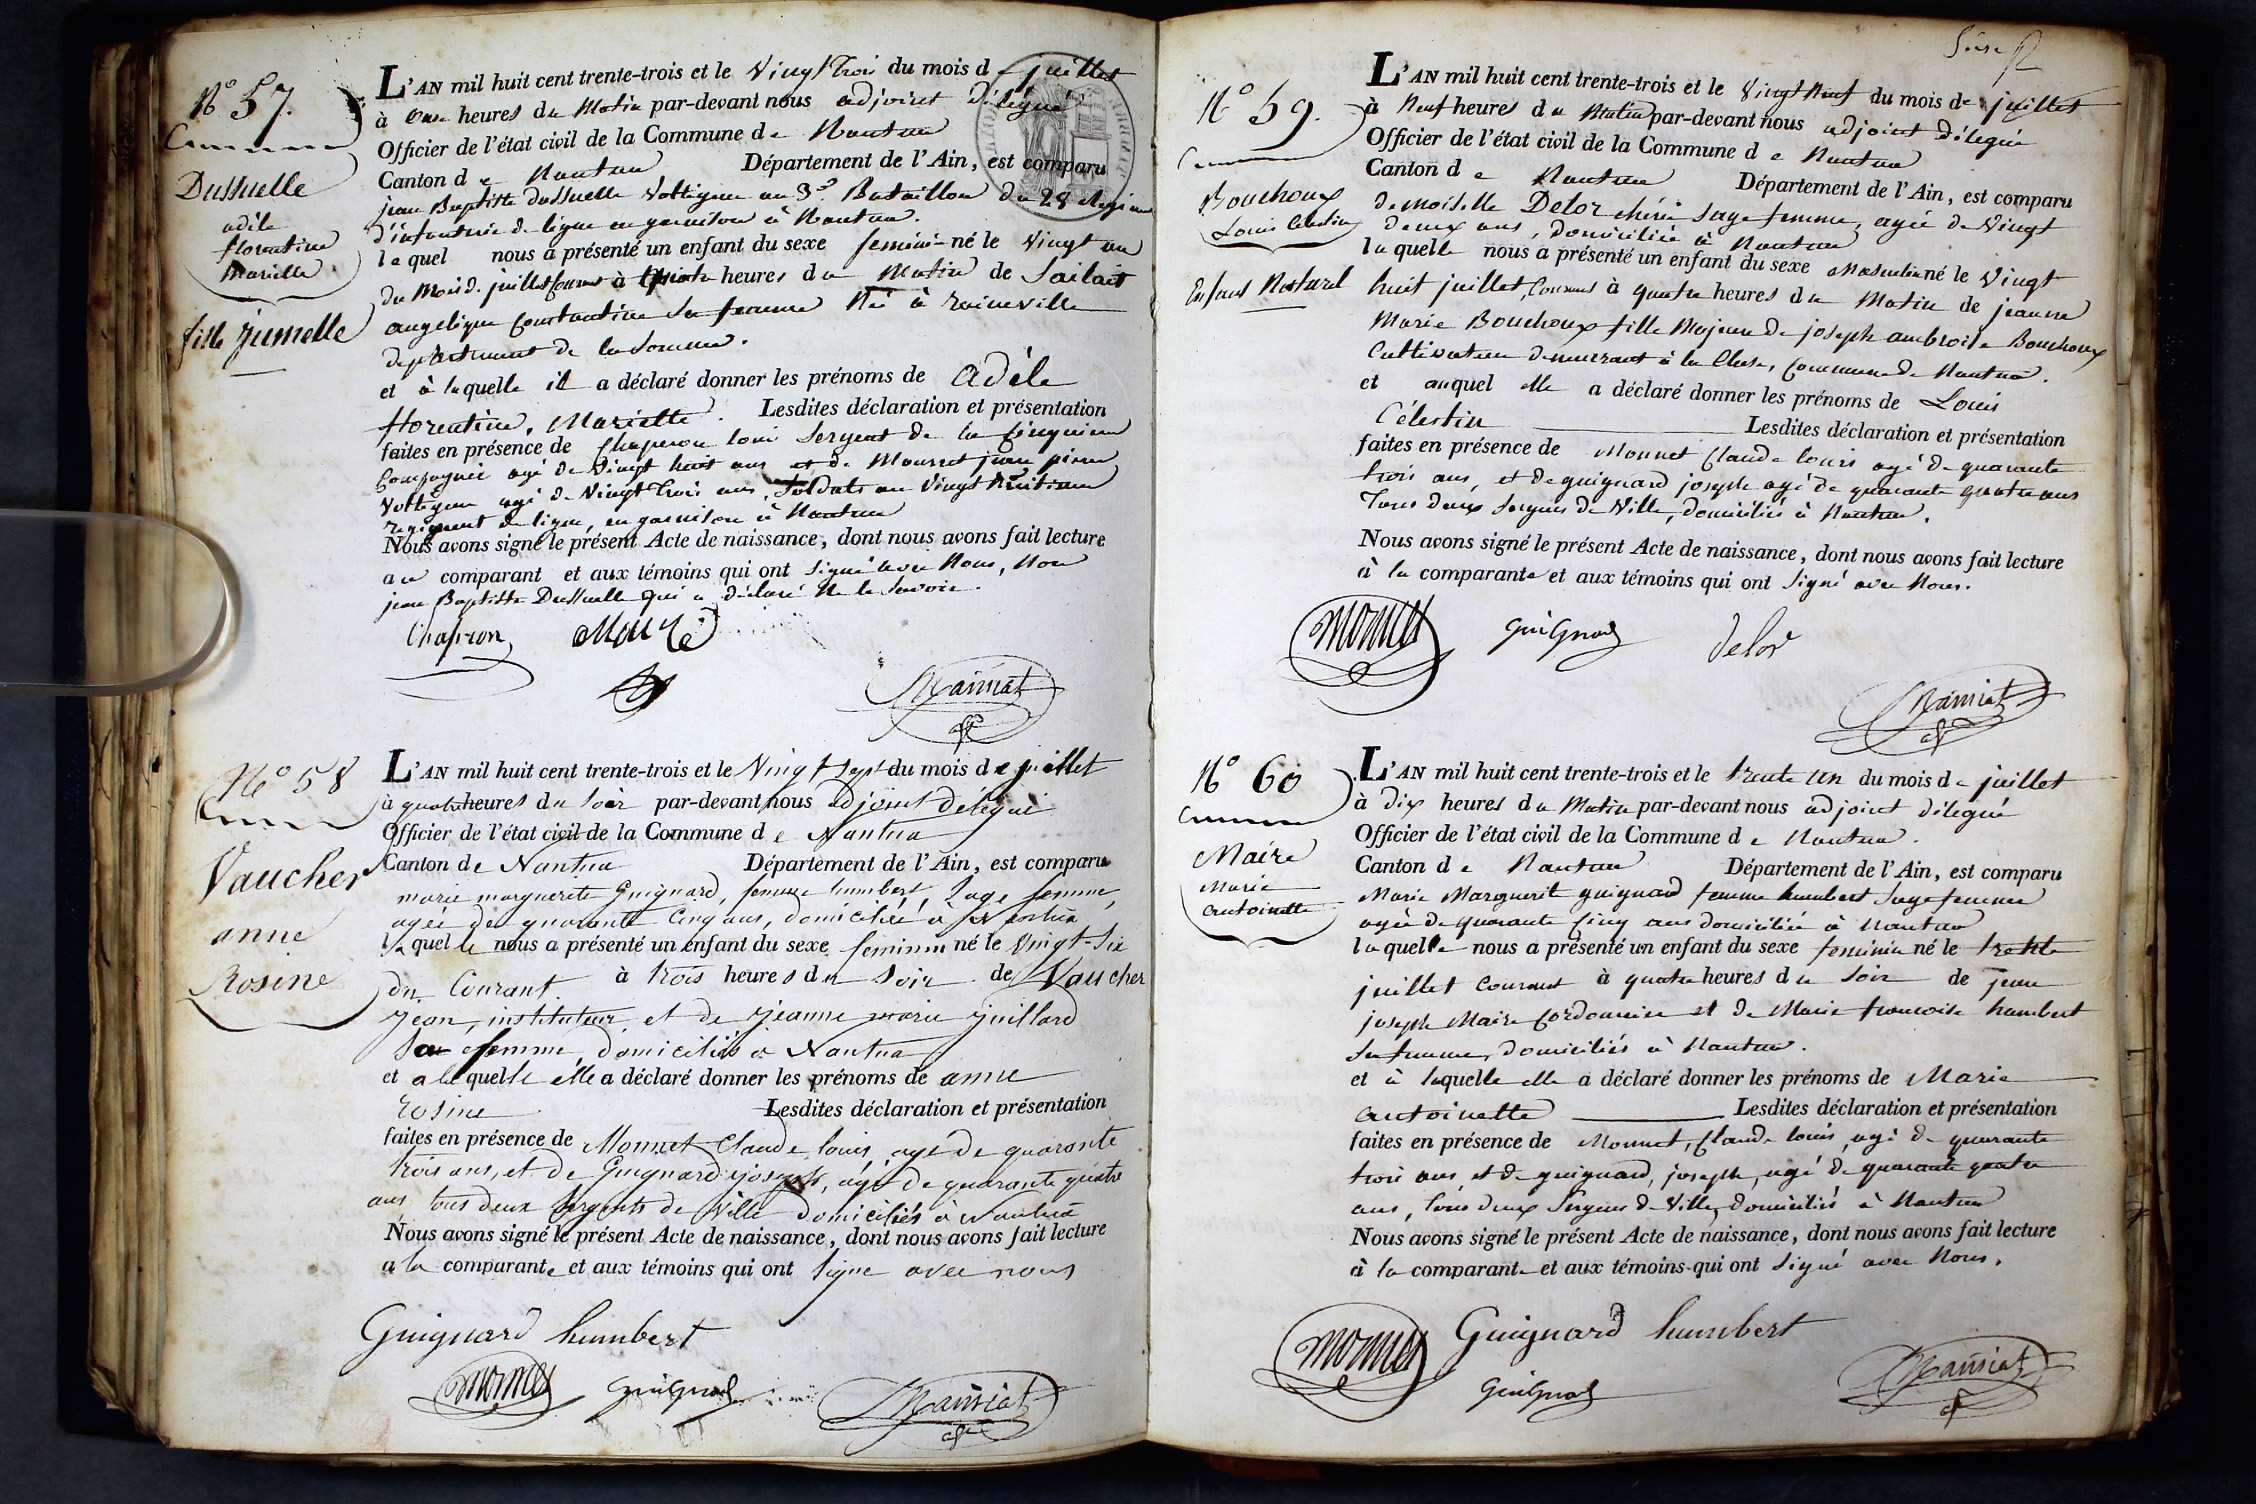 N° 57.
Commune
Dussuelle
adèle
florentine
Marielle
fille jumelle
L'AN mil huit cent trente-trois et le Vingt Trois du mois de juillet
à onze heures du Matin par-devant nous adjoint délégué
Officier de l'état civil de la Commune de Nantua
Canton de Nantua Département de l'Ain, est comparu
jean Baptiste Dussuelle Voltigeur au 3e Bataillon du 28 Regiment
d'infanterie de ligne en garnison à Nantua.
lequel nous a présenté un enfant du sexe feminin né le Vingt un
du Mois de juillet Courant à heures du Matin de Sailant
angelique Constantine sa femme Né à raineville
departement de la Somme.
et à laquelle il a déclaré donner les prénoms de adèle
florentine, Marielle. Lesdites déclaration et présentation
faites en présence de Chaperon louis Sergent de la Cinquieme
Compagnie agé de Vingt huit ans et de Mourret jean pierre
Voltigeur agé de Vingt Trois ans, Soldats au Vingt huitieme
regiment de ligne, en garnison à Nantua
Nous avons signé le présent Acte de naissance, dont nous avons fait lecture
au comparant et aux témoins qui ont signé avec Nous, Non
jean Baptiste Dussuelle qui a déclaré Ne le Savoir.
Chapron
Mansiat
N° 58
Commune
Vaucher
anne
Rosine
L'AN mil huit cent trente-trois et le Vingt Sept du mois de juillet
à quatre heures du Soir par-devant nous adjoint délégué
Officier de l'état civil de la Commune de Nantua
Canton de Nantua Département de l'Ain, est comparu
marie marguerite Guignard, femme humbert, Sage femme,
agée de quarante Cinq ans, domiciliée à Nantua,
laquelle nous a présenté un enfant du sexe feminin né le Vingt-Six
du Courant à trois heures du Soir de Vaucher
jean, instituteur, et de jeanne marie juillard
Sa femme, domiciliés à Nantua
et a laquelle elle a déclaré donner les prénoms de anne
rosine Lesdites déclaration et présentation
faites en présence de Monnet Claude louis, agé de quarante
trois ans, et de Guignard joseph, agé de quarante quatre
ans tous deux Sergents de Ville domiciliés à Nantua
Nous avons signé le présent Acte de naissance, dont nous avons fait lecture
a la comparante et aux témoins qui ont Signé avec nous
Guignard humbert
Monnet Guignard Mansiat
N° 59.
Commune
Bouchoux
Louis Célestin
Enfant Naturel
L'AN mil huit cent trente-trois et le Vingt Neuf du mois de juillet
à Neuf heures du Matin par-devant nous adjoint délégué
Officier de l'état civil de la Commune de Nantua
Canton de Nantua Département de l'Ain, est comparu
demoiselle Delor chérie Sage femme, agée de Vingt
deux ans, domiciliée à Nantua
laquelle nous a présenté un enfant du sexe Masculin né le Vingt
huit juillet, Courant à quatre heures du Matin de jeanne
Marie Bouchoux fille Majeure de joseph ambroise Bouchoux
Cultivateur demeurant à la Cluse, Commune de Nantua.
et auquel elle a déclaré donner les prénoms de Louis
Célestin Lesdites déclaration et présentation
faites en présence de Monnet Claude louis agé de quarante
trois ans, et de guignard joseph agé de quarante quatre ans
Tous deux Sergens de Ville, domiciliés à Nantua.
Nous avons signé le présent Acte de naissance, dont nous avons fait lecture
à la comparante et aux témoins qui ont Signé avec Nous.
Monnet Guignard delor
Mansiat
N° 60
Commune
Maire
Marie
antoinette
L'AN mil huit cent trente-trois et le trente un du mois de juillet
à dix heures du Matin par-devant nous adjoint délégué
Officier de l'état civil de la Commune de Nantua.
Canton de Nantua Département de l'Ain, est comparu
Marie Marguerit guignard femme humbert Sage femme
agée de quarante Cinq ans domiciliée à Nantua
laquelle nous a présenté un enfant du sexe feminin né le trente
juillet Courant à quatre heures du Soir de jean
joseph Maire Cordonnier et de Marie francoise humbert
Sa femme, domiciliés à Nantua.
et à laquelle elle a déclaré donner les prénoms de Marie
antoinette Lesdites déclaration et présentation
faites en présence de Monnet, Claude louis, agé de quarante
trois ans, et de guignard, joseph, agé de quarante quatre
ans, tous deux Sergens de Ville, domiciliés à Nantua
Nous avons signé le présent Acte de naissance, dont nous avons fait lecture
à la comparante et aux témoins qui ont Signé avec Nous.
Monnet Guignard humbert
Guignard Mansiat